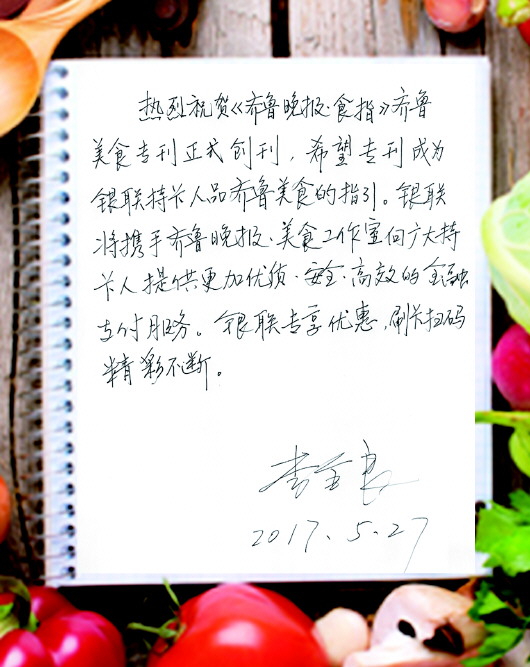 热烈祝贺《齐鲁晚报·食指》齐鲁
美食专刊正式创刊，希望专刊成为
银联持卡人品齐鲁美食的指引。银联
将携手齐鲁晚报·美食工作室向广大持
卡人提供更加优质·安全·高效的金融
支付服务。银联专享优惠，刷卡扫码
精彩不断。
李全良
2017.5.27